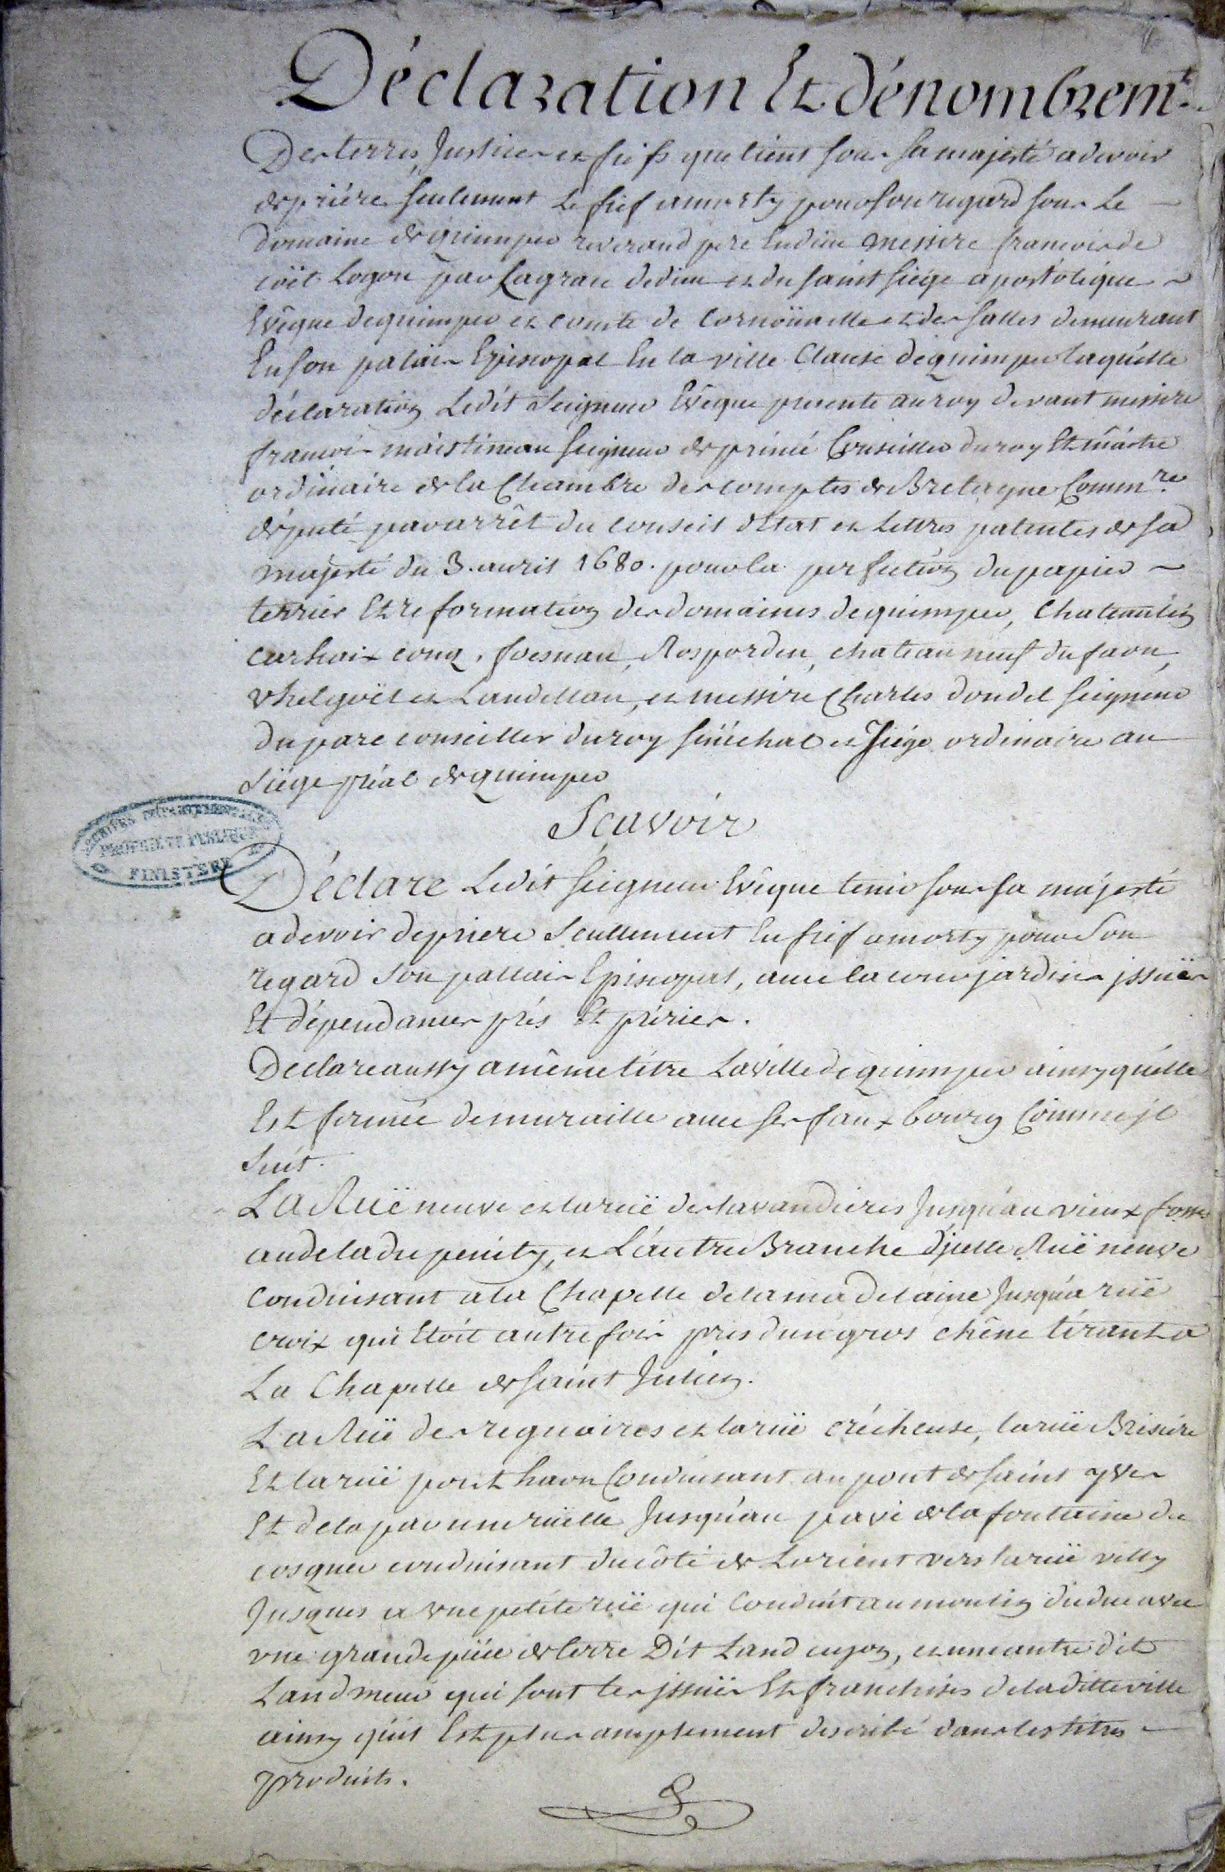 Déclaration Et dénombremt.
Des terres, Justices et fiefs que tient sous sa majesté a devoir
de priére seulement Le fief amorty pour son regard sous Le
domaine de quimper reverand pere En dieu messire francois de
coët Logon par La grace de dieu et du saint siége apostolique
Evêque de quimper et comte de Cornoüaille et des salles demeurant
En son palais Episcopal En la ville Clause de quimper laquélle
déclaration Ledit Seigneur Evêque presente au roy devant messire
francois Seigneur de Conseiller du roy Et maitre
ordinaire de la Chambre des comptes de Bretagne Commre
député par arrêt du conseil d'Etat et Lettres patentes de sa
majesté du 3. avril 1680. pour la perfection du papier
terrier Et reformation des domaines de quimper, Chateaulin
carhaix conq. foesnan, Rosporden, chateauneuf du faou,
vhelgoët et Landellau, et messire Charles dondel seigneur
du parc conseiller du roy sénéchal et Juge ordinaire au
Siége préal de quimper
Scavoir
ARCHIVES DÉPARTEMENTALES
PROPRIÉTÉ PUBLIQUE
FINISTÈRE
Déclare Ledit seigneur Evêque tenir sous sa majesté
a devoir de priere Seullement En fief amorty pour Son
regard Son pallais Episcopal, avec la cour jardins jssuës
Et dépendances prés Et préries.
Declare aussy a même titre La ville de quimper ainsy quélle
Est fermée de muraille avec ses faux bourg Comme jl
Suit.
La Ruë neuve et la ruë des lavandieres Jusqu'au vieux fossé
au dela du penity, et L'autre Branche d'jcelle Ruë neuve
Conduisant a la Chapelle de la madelaine Jusqu'a ruë
croix qui Etoit autrefois pres d'un gros chêne tirant a
La Chapelle de saint Julien.
La Ruë des reguaires et la ruë crécheuse, la ruë Brisiére
Et la ruë pont havn Conduisant au pont de saint yves
Et de la par une ruëlle Jusqu'au pavé de la fontaine du
cosquer conduisant du côté de Lorient vers la ruë villy
Jusques a vne petite ruë qui Conduit au moulin du duc avec
vne grande piéce de terre Dit Land , et une autre dit
Landmeur qui sont les jssuës Et franchises de la ditte ville
ainsy quil Est plus amplement describé dans les titres
produits.